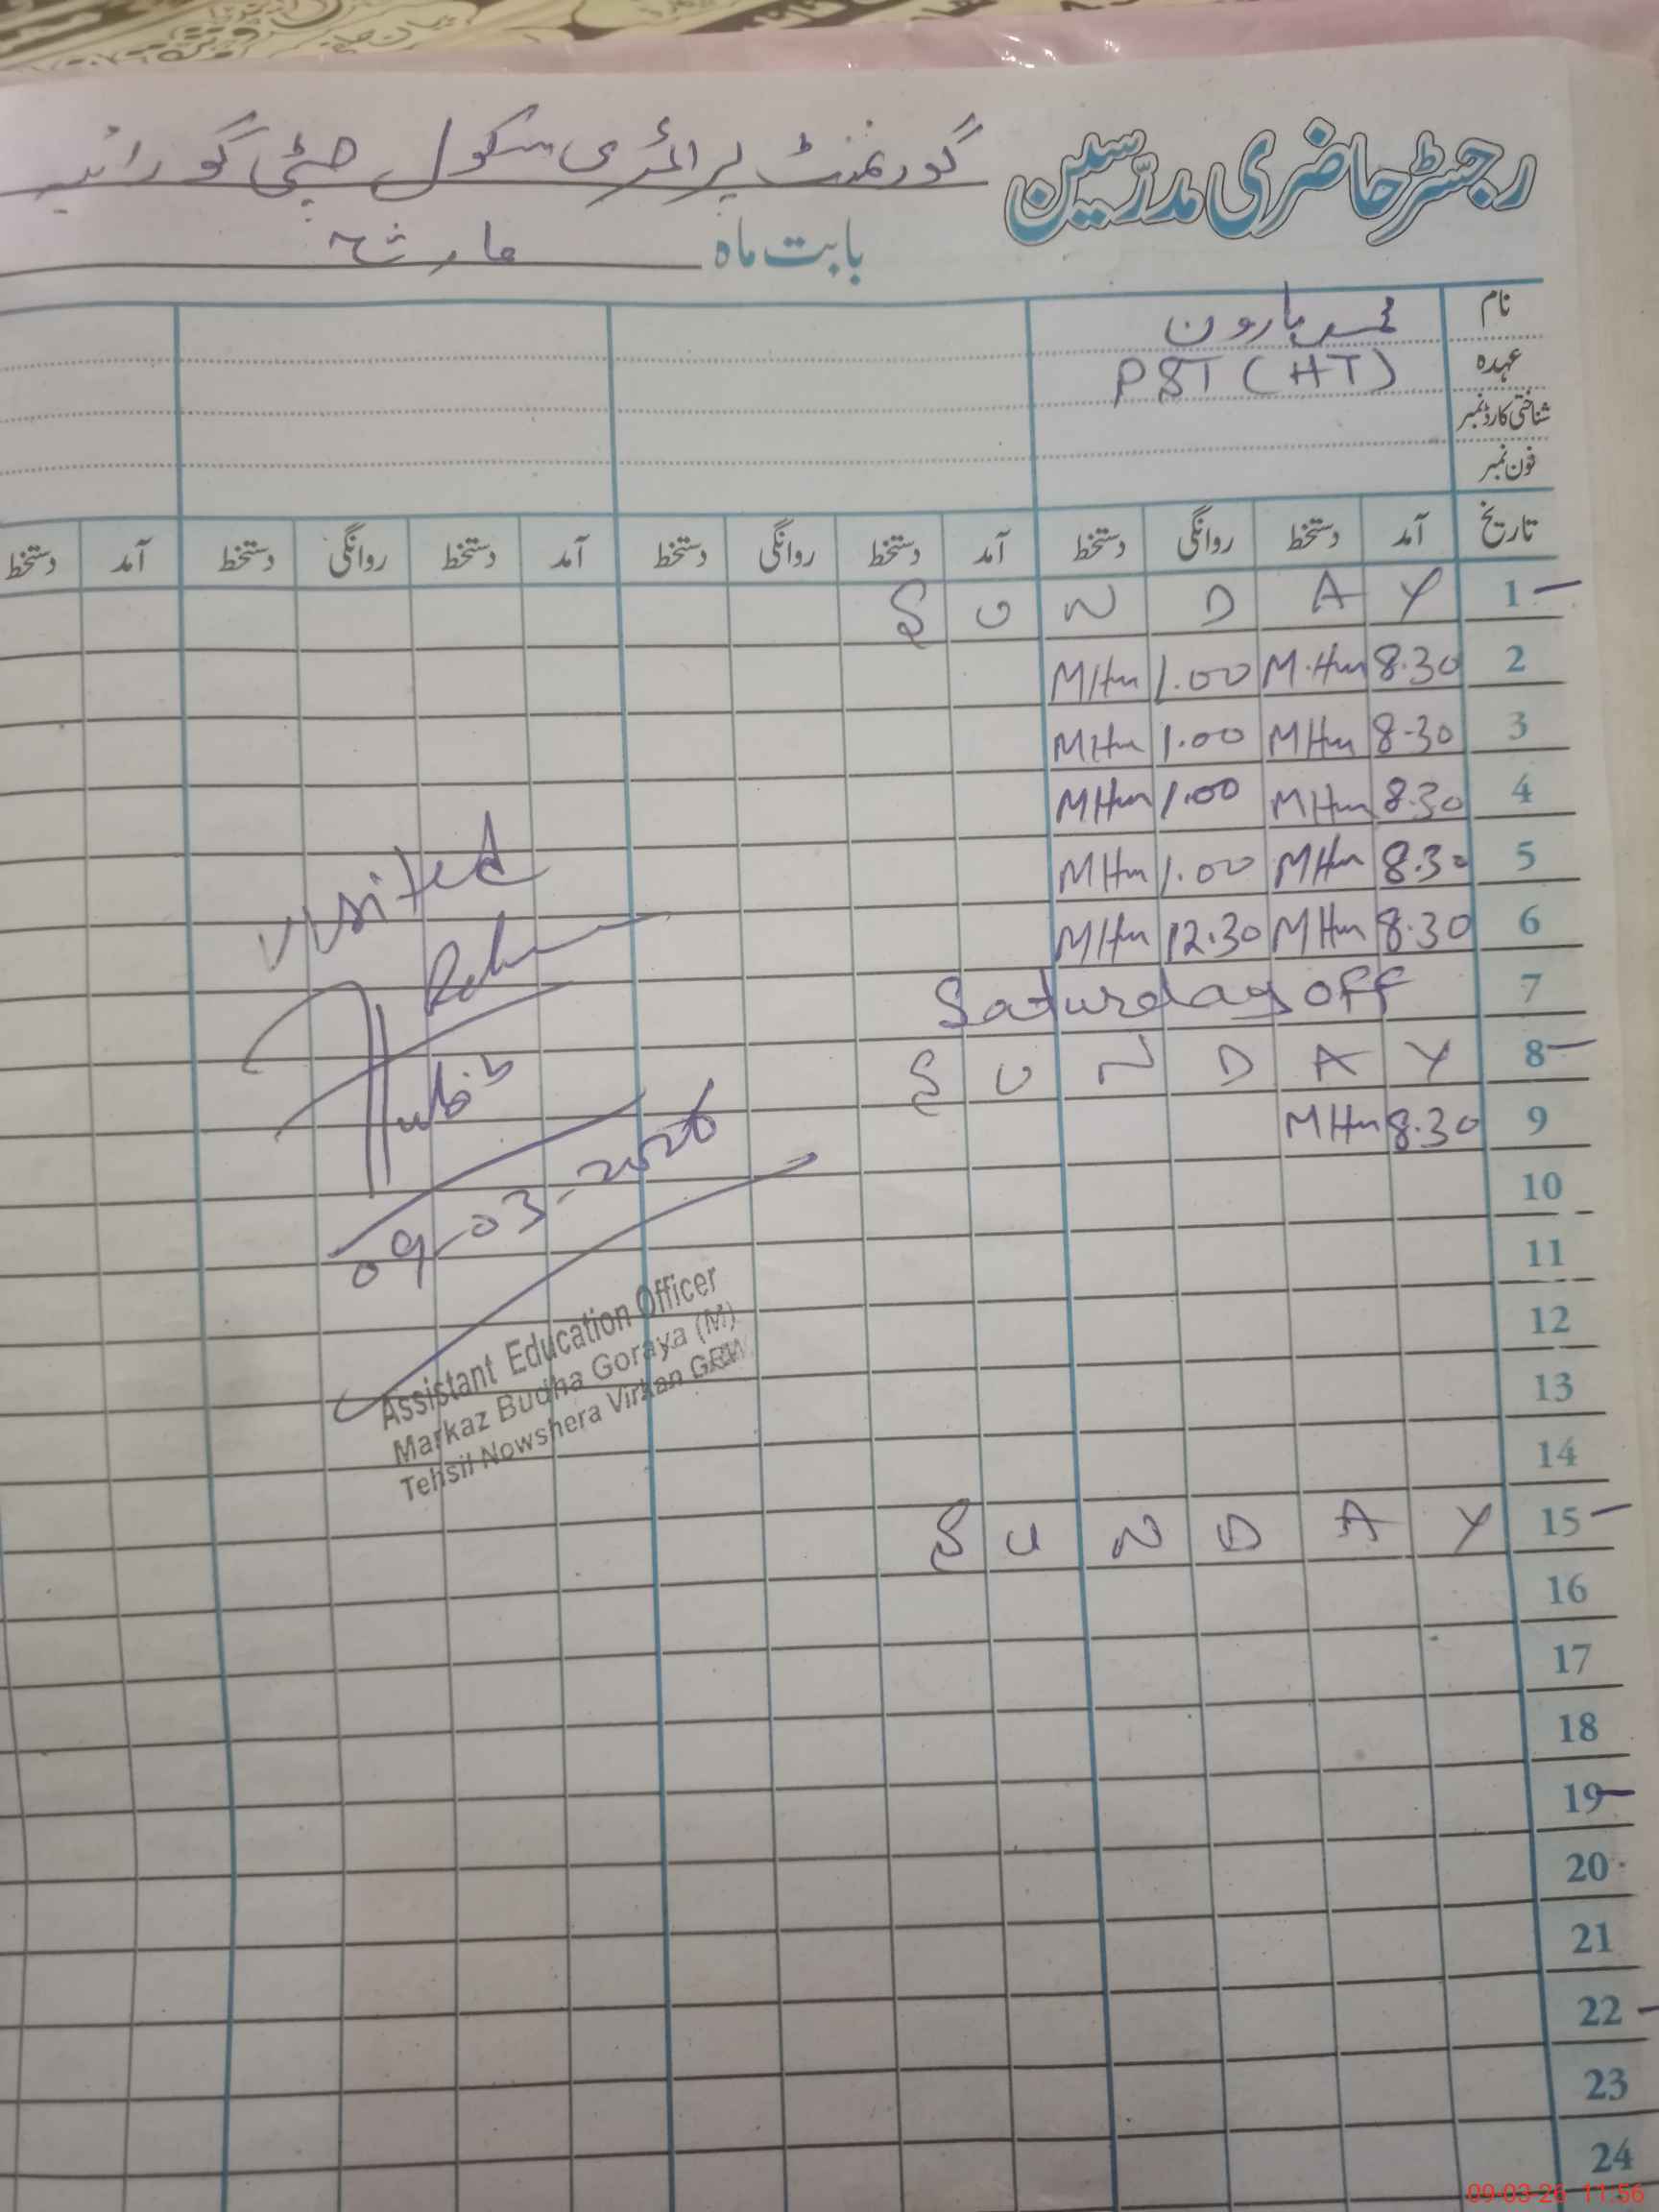 رجسٹر حاضری مدرّسین گورنمنٹ پرائمری سکول چٹی گورائیہ
بابت ماہ مارچ
نام محمد ہارون
عہدہ PST (HT)
شناختی کارڈ نمبر
فون نمبر
تاریخ آمد دستخط روانگی دستخط آمد دستخط روانگی دستخط آمد دستخط روانگی دستخط آمد دستخط
1 SUNDAY
2 8.30 M.Hm 1.00 MHm
3 8-30 MHm 1.00 MHm
4 8.30 MHm 1.00 MHm
5 8.30 MHm 1.00 MHm
6 8.30 MHm 12.30 MHm
7 Saturday off
8 SUNDAY
9 8.30 MHm
10
11
12
13
14
15 SUNDAY
16
17
18
19
20
21
22
23
24
visited
09-03-2026
Assistant Education Officer
Markaz Budha Goraya (M)
Tehsil Nowshera Virkan GRW
09-03-26 11:56